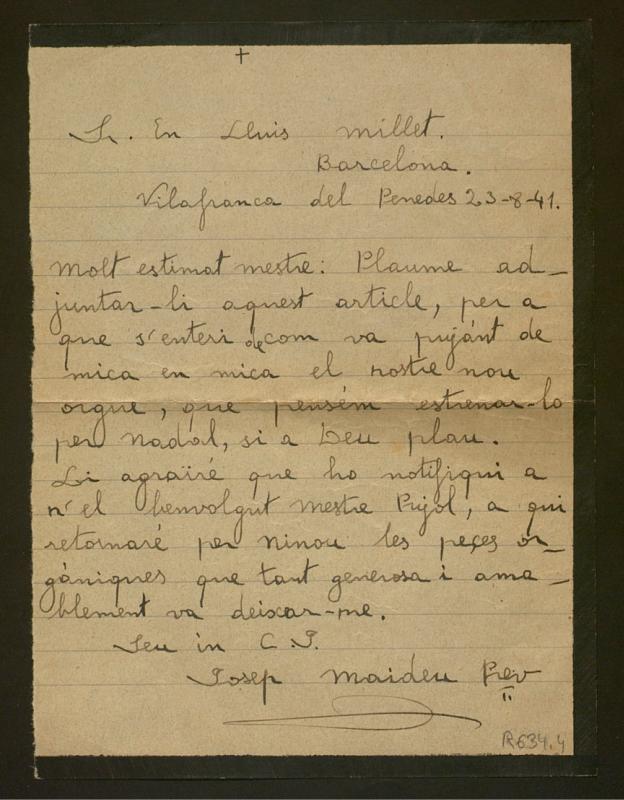 +
Sr. En Lluis Millet.
Barcelona.
Vilafranca del Penedes 23-8-41.
Molt estimat mestre: Plaume ad-
juntar-li aquest article, per a
que s'enteri de com va pujánt de
mica en mica el nostre nou
orgue, que pensém estrenar-lo
per Nadal, si a Deu plau.
Li agrairé que ho notifiqui a
n'el benvolgut mestre Pujol, a qui
retornaré per Ninou les peçes or-
gániques que tant generosa i ama-
blement va deixar-me.
Seu in C. J.
Josep Maideu Prev
R634.4